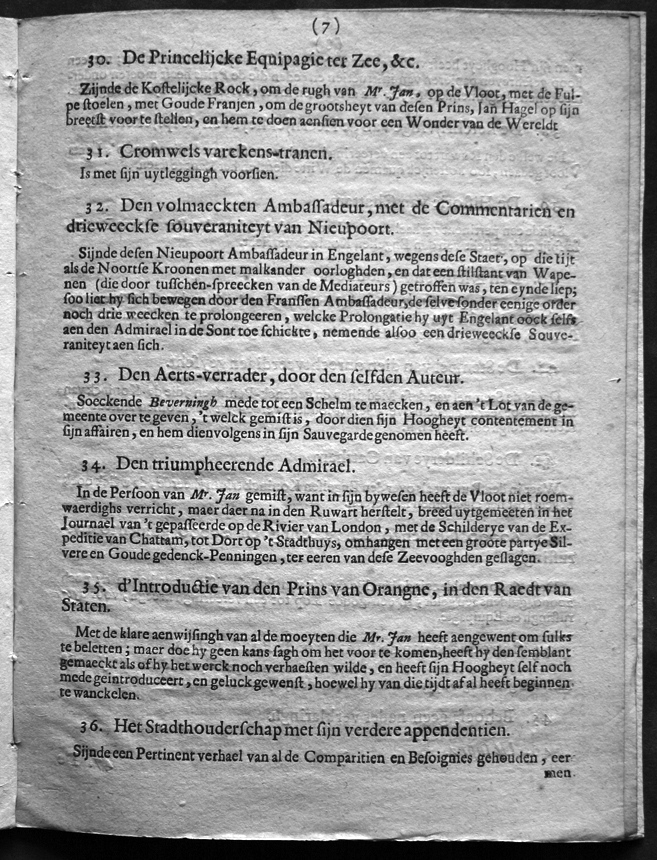 (7)
30. De Princelijcke Equipagie ter Zee, &c.
Zijnde de Kostelijcke Rock, om de rugh van Mr. Jan, op de Vloot, met de Ful-
pe stoelen, met Goude Franjen, om de grootsheyt van desen Prins, Jan Hagel op sijn
breetst voor te stellen, en hem te doen aensien voor een Wonder van de Wereldt
31. Cromwels varckens-tranen.
Is met sijn uytleggingh voorsien.
32. Den volmaeckten Ambassadeur, met de Commentarien en
drieweeckse souveraniteyt van Nieupoort.
Sijnde desen Nieupoort Ambassadeur in Engelant, wegens dese Staet, op die tijt
als de Noortse Kroonen met malkander oorloghden, en dat een stilstant van Wape-
nen (die door tusschen-spreecken van de Mediateurs) getroffen was, ten eynde liep;
soo liet hy sich bewegen door den Franssen Ambassadeur, de selve sonder eenige order
noch drie weecken te prolongeeren, welcke Prolongatie hy uyt Engelant oock selfs
aen den Admirael in de Sont toe schickte, nemende alsoo een drieweeckse Souve-
raniteyt aen sich.
33. Den Aerts-verrader, door den selfden Auteur.
Soeckende Beverningh mede tot een Schelm te maecken, en aen 't Lot van de ge-
meente over te geven, 't welck gemist is, door dien sijn Hoogheyt contentement in
sijn affairen, en hem dienvolgens in sijn Sauvegarde genomen heeft.
34. Den triumpheerende Admirael.
In de Persoon van Mr. Jan gemist, want in sijn bywesen heeft de Vloot niet roem-
waerdighs verricht, maer daer na in den Ruwart herstelt, breed uytgemeeten in het
Journael van 't gepasseerde op de Rivier van London, met de Schilderye van de Ex-
peditie van Chattam, tot Dort op 't Stadthuys, omhangen met een groote partye Sil-
vere en Goude gedenck-Penningen, ter eeren van dese Zeevooghden geslagen.
35. d'Introductie van den Prins van Orangne, in den Raedt van
Staten.
Met de klare aenwijsingh van al de moeyten die Mr. Jan heeft aengewent om sulks
te beletten; maer doe hy geen kans sagh om het voor te komen, heeft hy den semblant
gemaeckt als of hy het werck noch verhaesten wilde, en heeft sijn Hoogheyt self noch
mede geintroduceert, en geluck gewenst, hoewel hy van die tijdt af al heeft beginnen
te wanckelen.
36. Het Stadthouderschap met sijn verdere appendentien.
Sijnde een Pertinent verhael van al de Comparitien en Besoignies gehouden, eer
men.